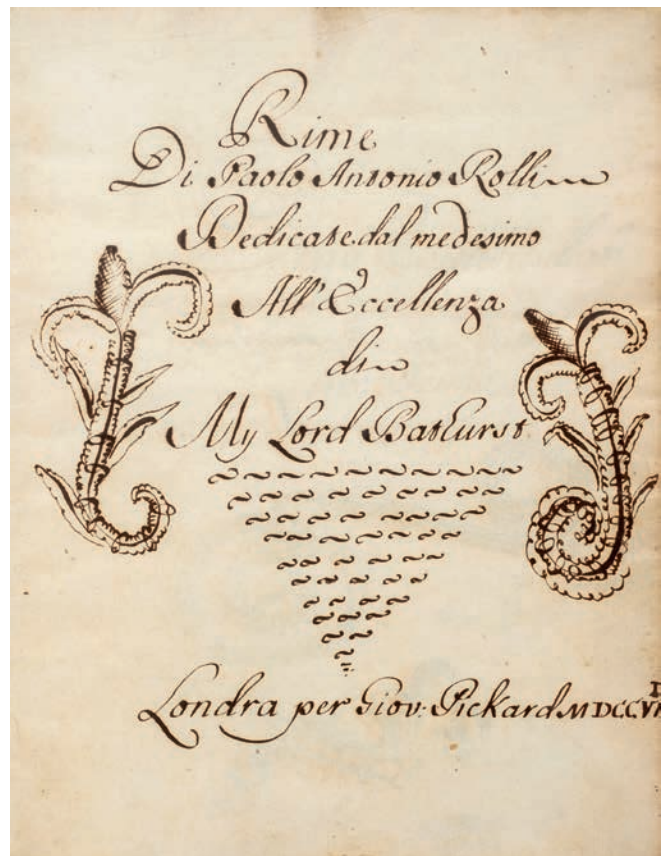 Rime
Di Paolo Antonio Rolli
Dedicate dal medesimo
All' Eccellenza
di
My Lord Bathurst
Londra per Giov: Pickard